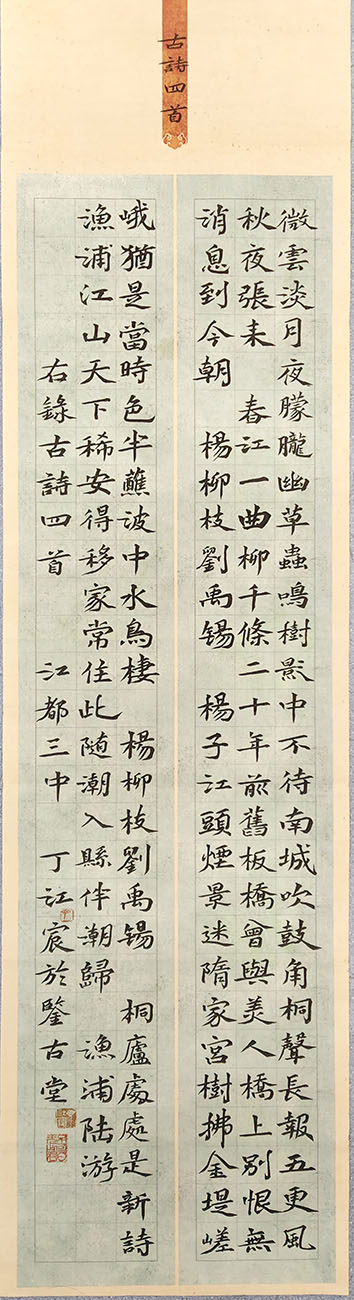 古詩四首
微雲淡月夜朦朧幽草蟲鳴樹影中不待南城吹鼓角桐聲長報五更風
秋夜張耒 春江一曲柳千條二十年前舊板橋曾與美人橋上別恨無
消息到今朝 楊柳枝劉禹錫 楊子江頭煙景迷隋家宮樹拂金堤嵯
峨猶是當時色半蘸波中水鳥棲 楊柳枝劉禹錫 桐廬處處是新詩
漁浦江山天下稀安得移家常住此隨潮入縣伴潮歸 漁浦陸游
右錄古詩四首 江都三中 丁江宸於鑒古堂